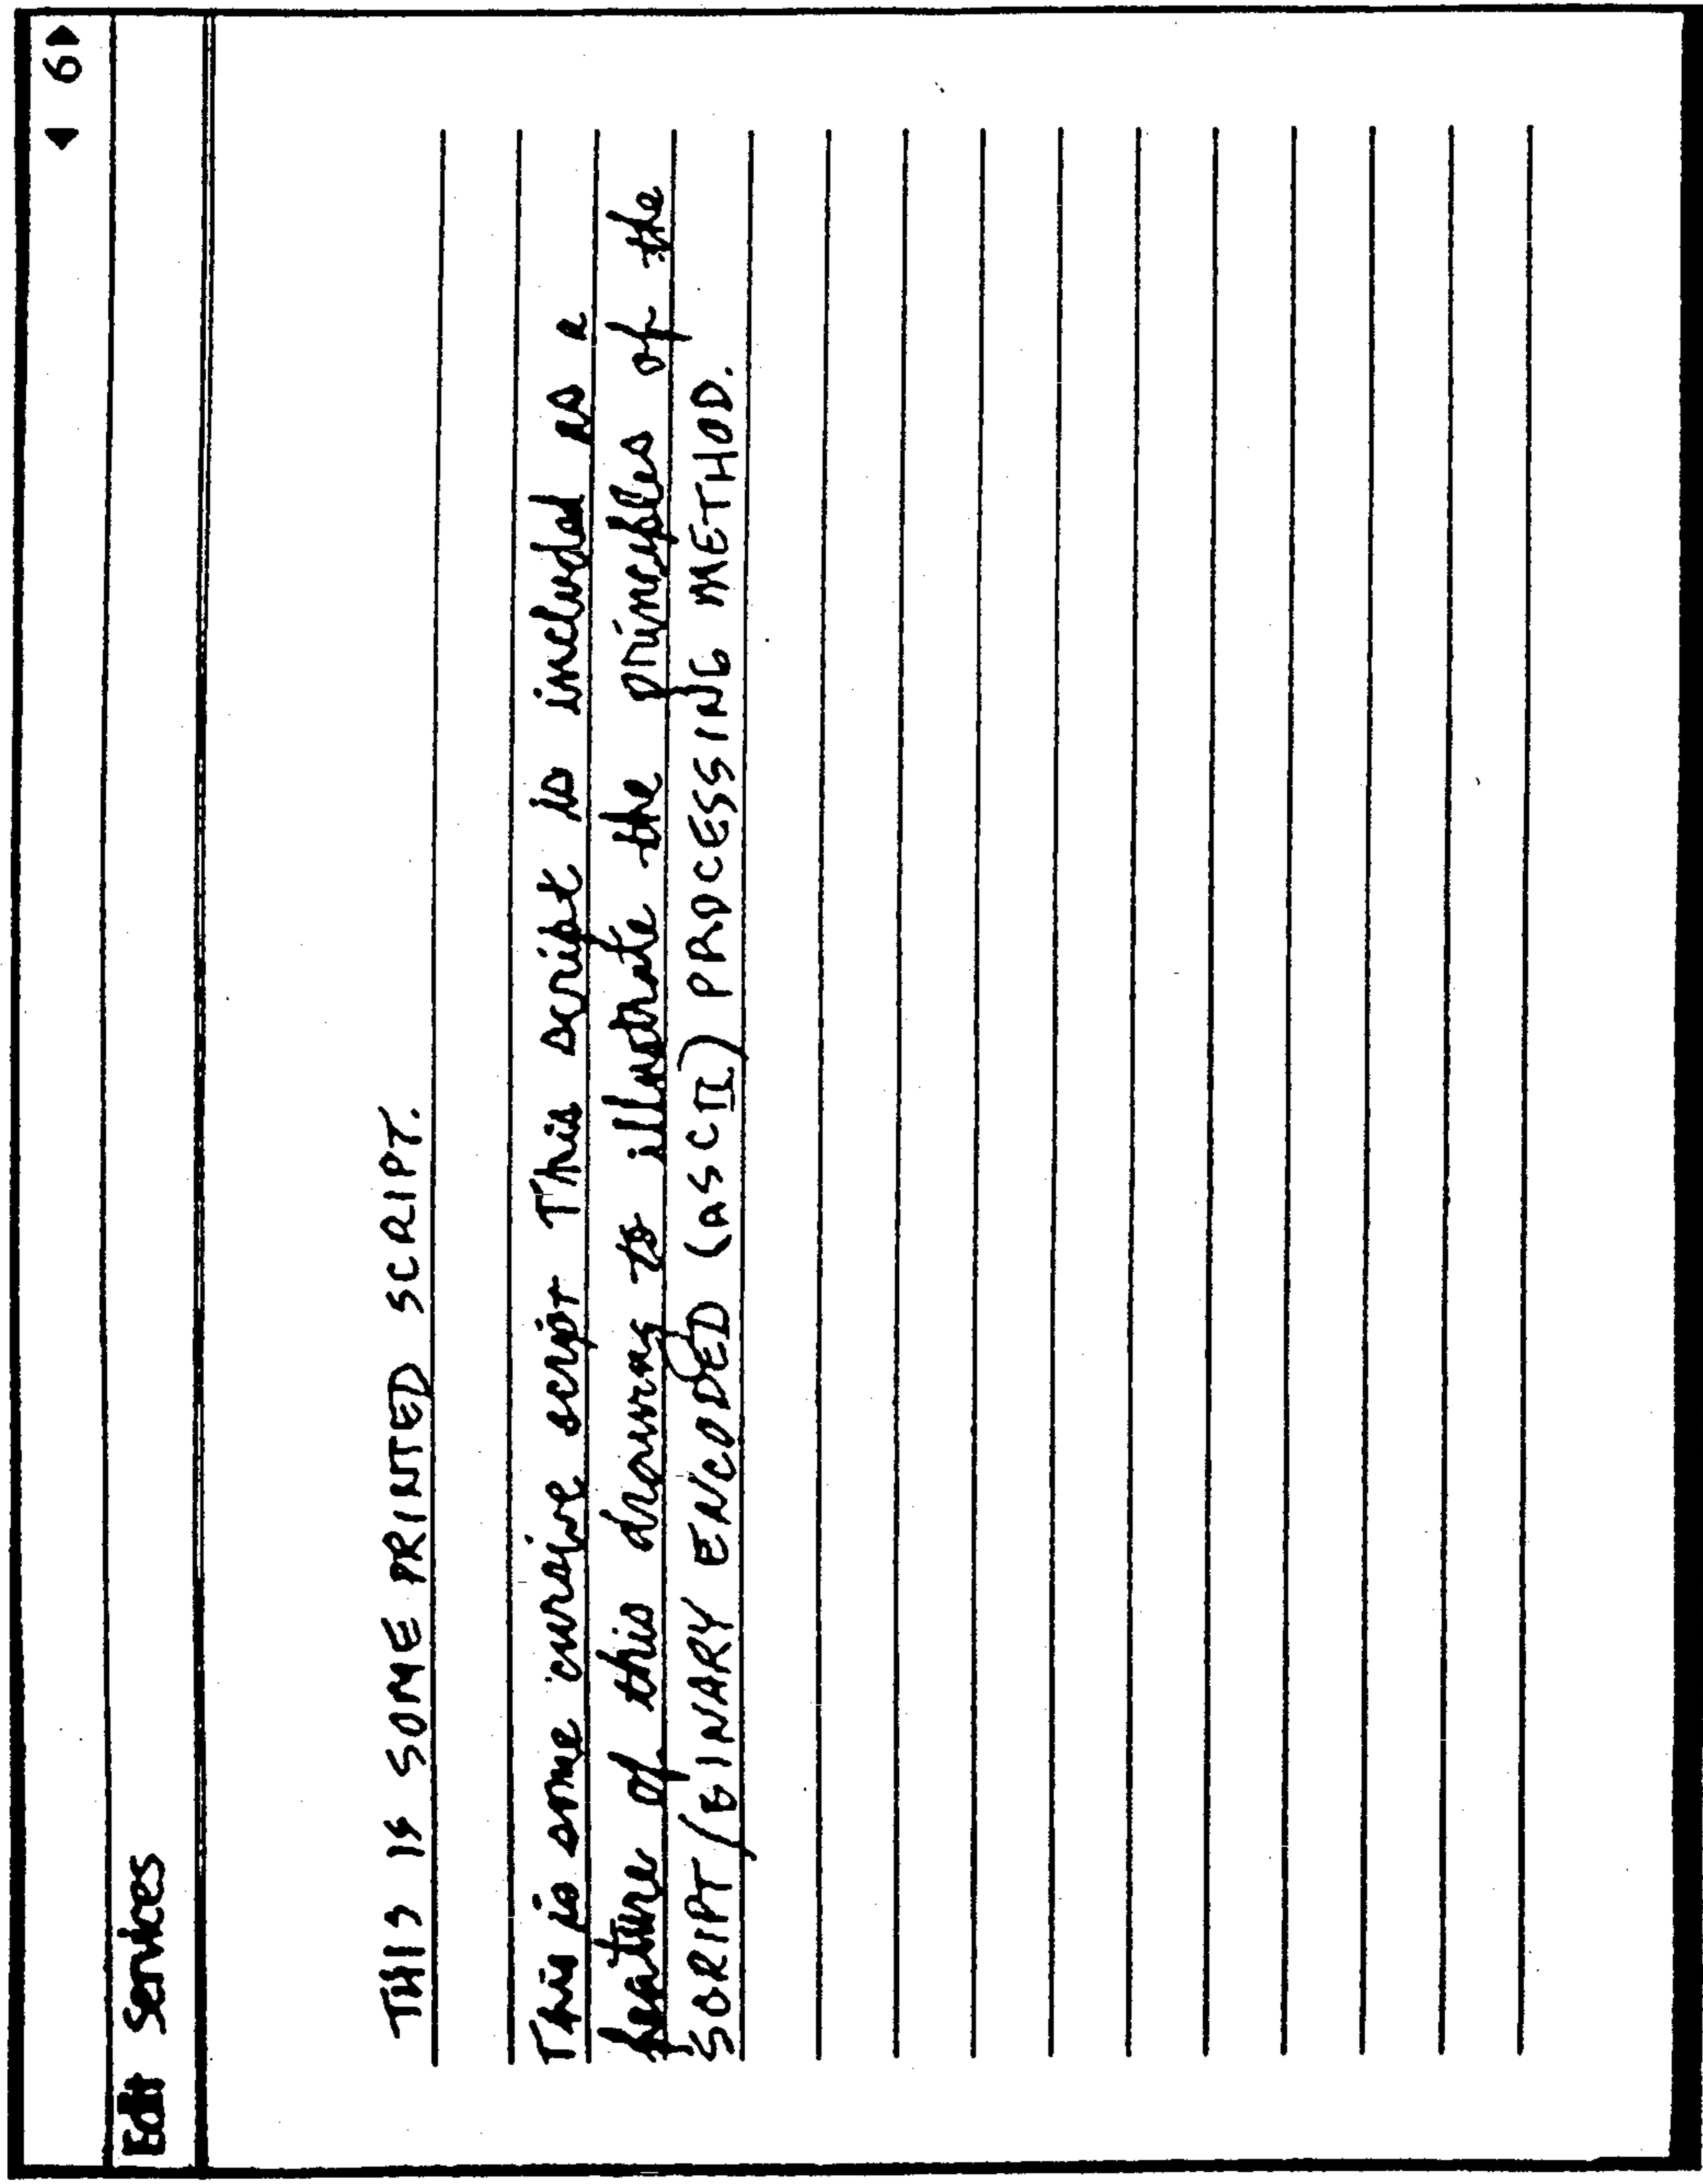 ◀ 6▶
Edit Services
THIS IS SOME PRINTED SCRIPT.
This is some cursive script This script is included as a
feature of this drawing to illustrate the principles of the
SCRIPT/BINARY ENCODED (ASCII) PROCESSING METHOD.